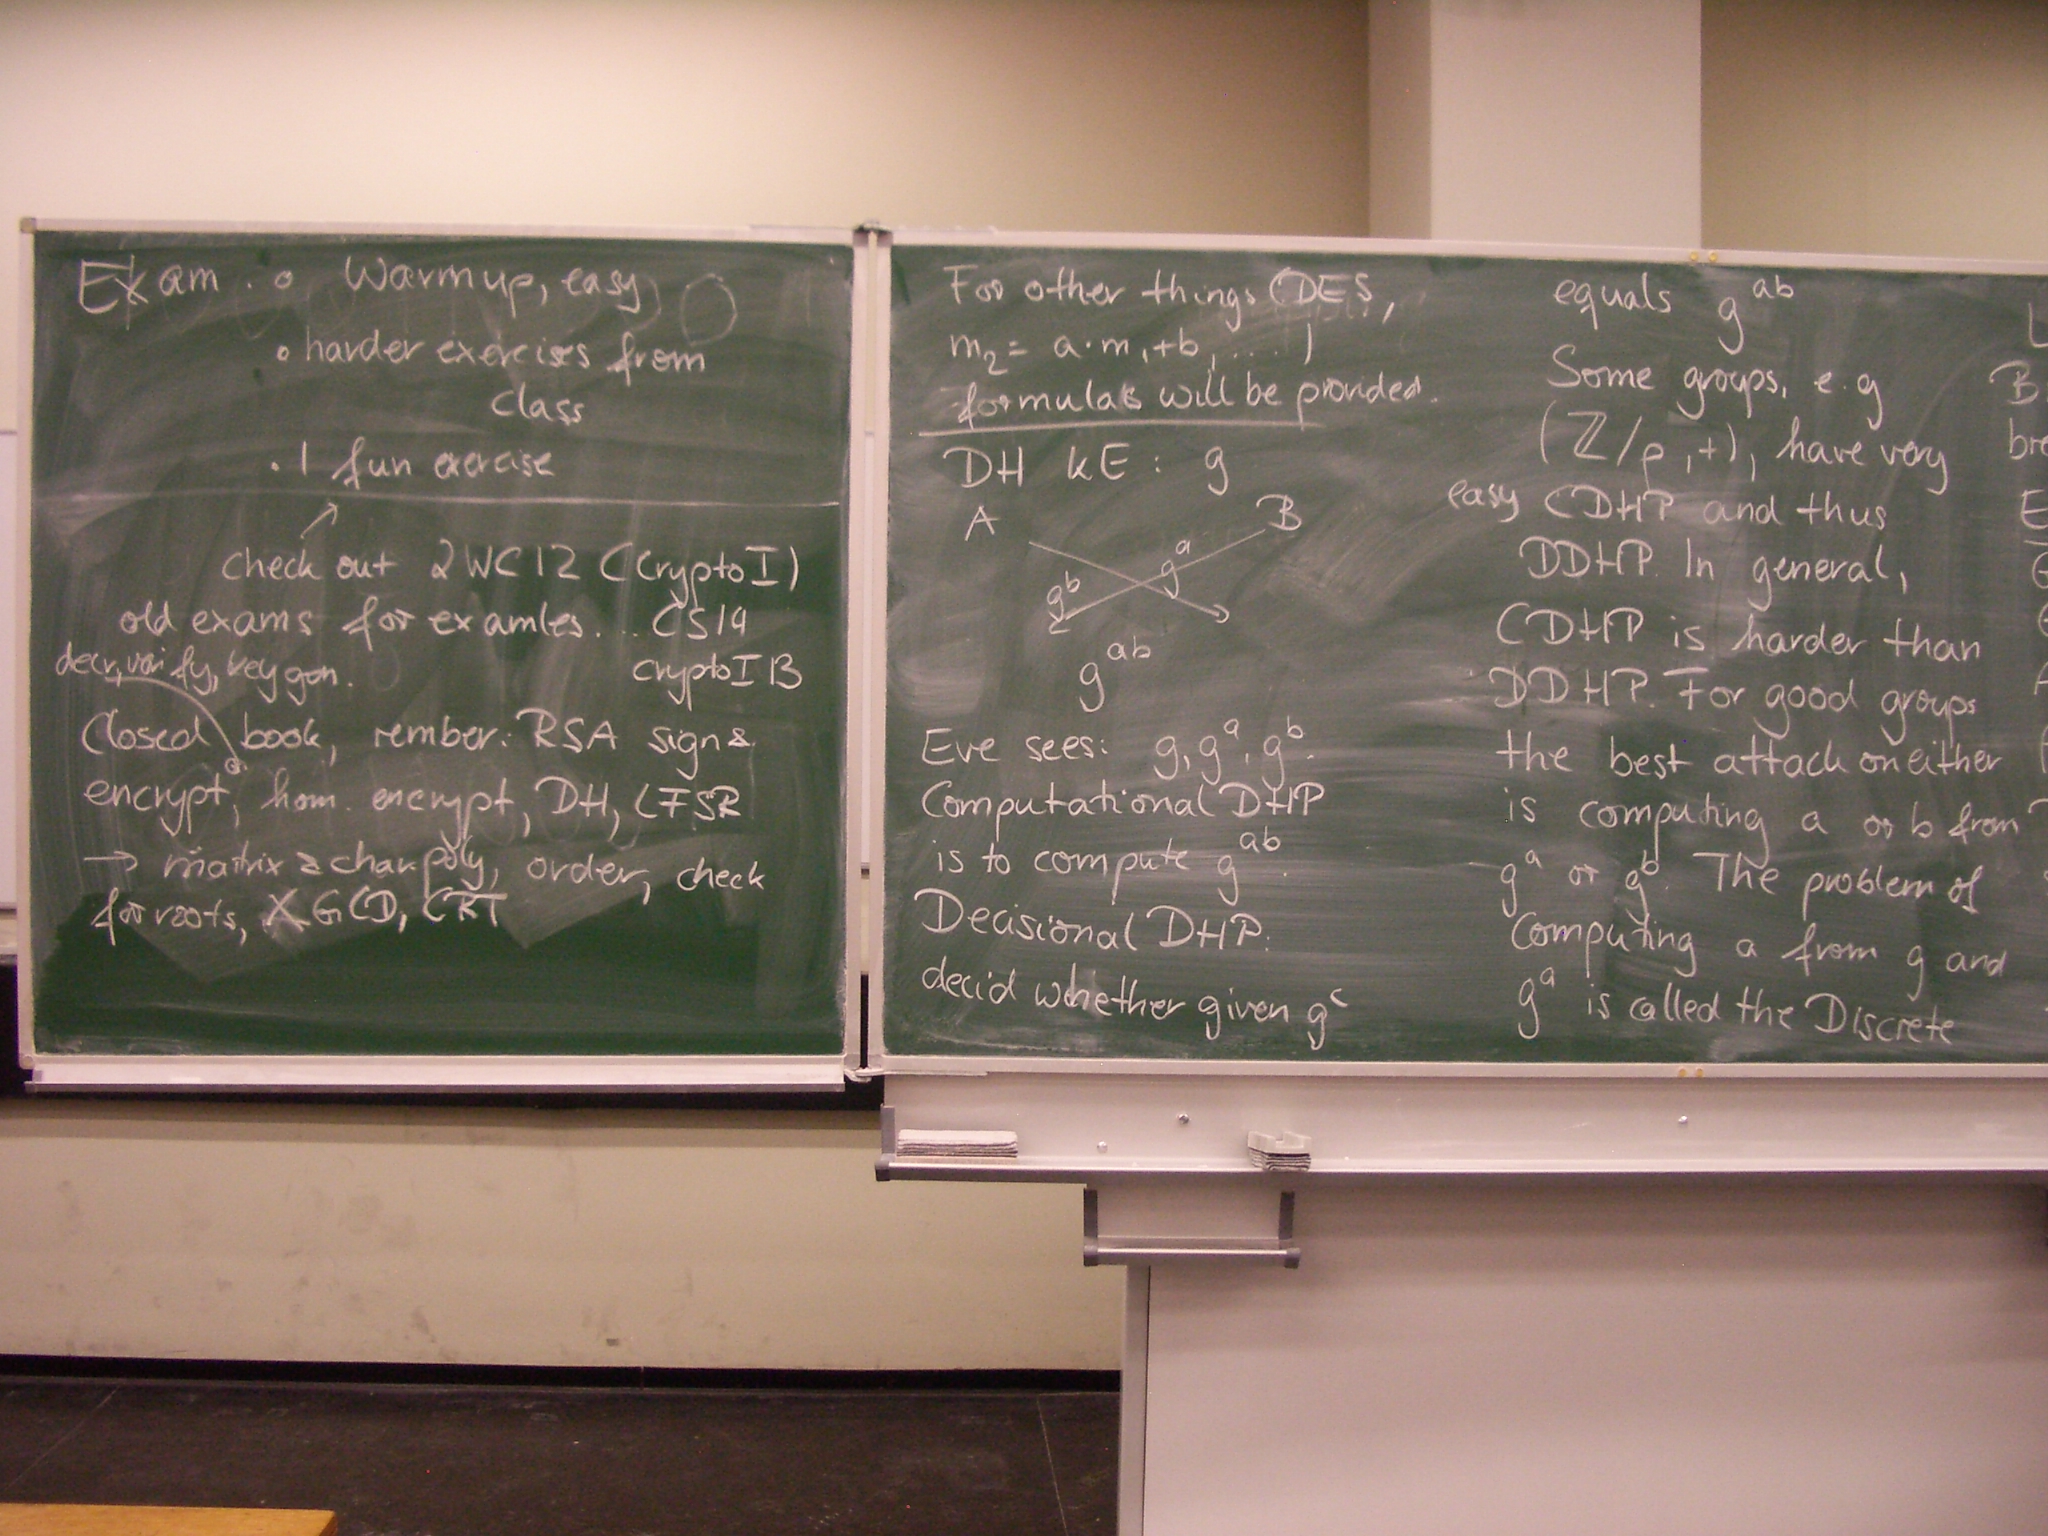 Exam. o Warmup, easy
o harder exercises from
class
. 1 fun exercise
check out 2WC12 (Crypto I)
old exams for examles... CS19
decr, verify, key gen. Crypto I B
Closed book, rember: RSA sign &
encrypt, hom. encrypt, DH, LFSR
→ matrix & char poly, order, check
for roots, XGCD, CRT
For other things (DES,
m₂ = a·m₁+b, ....)
formulas will be provided.
DH KE: g
A B
g^b g^a
g^ab
Eve sees: g, g^a, g^b.
Computational DHP
is to compute g^ab.
Decisional DHP:
decid whether given g^c
equals g^ab
Some groups, e.g
(ℤ/p,+), have very
easy CDHP and thus
DDHP. In general,
CDHP is harder than
DDHP. For good groups
the best attack on either
is computing a or b from
g^a or g^b. The problem of
computing a from g and
g^a is called the Discrete